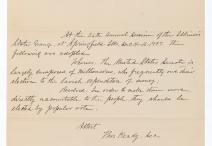 At the 26th annual session of the Illinois
State Grange at Springfield Ills. Dec. 1897. The
following was adopted.
Whereas, The United States Senate is
largely composed of Millionaires, who frequently owe their
election to the lavish expenditure of money.
Resolved, In order to make them more
directly accountable to the people they should be
elected by popular vote.
Attest
Thos Keady Sec